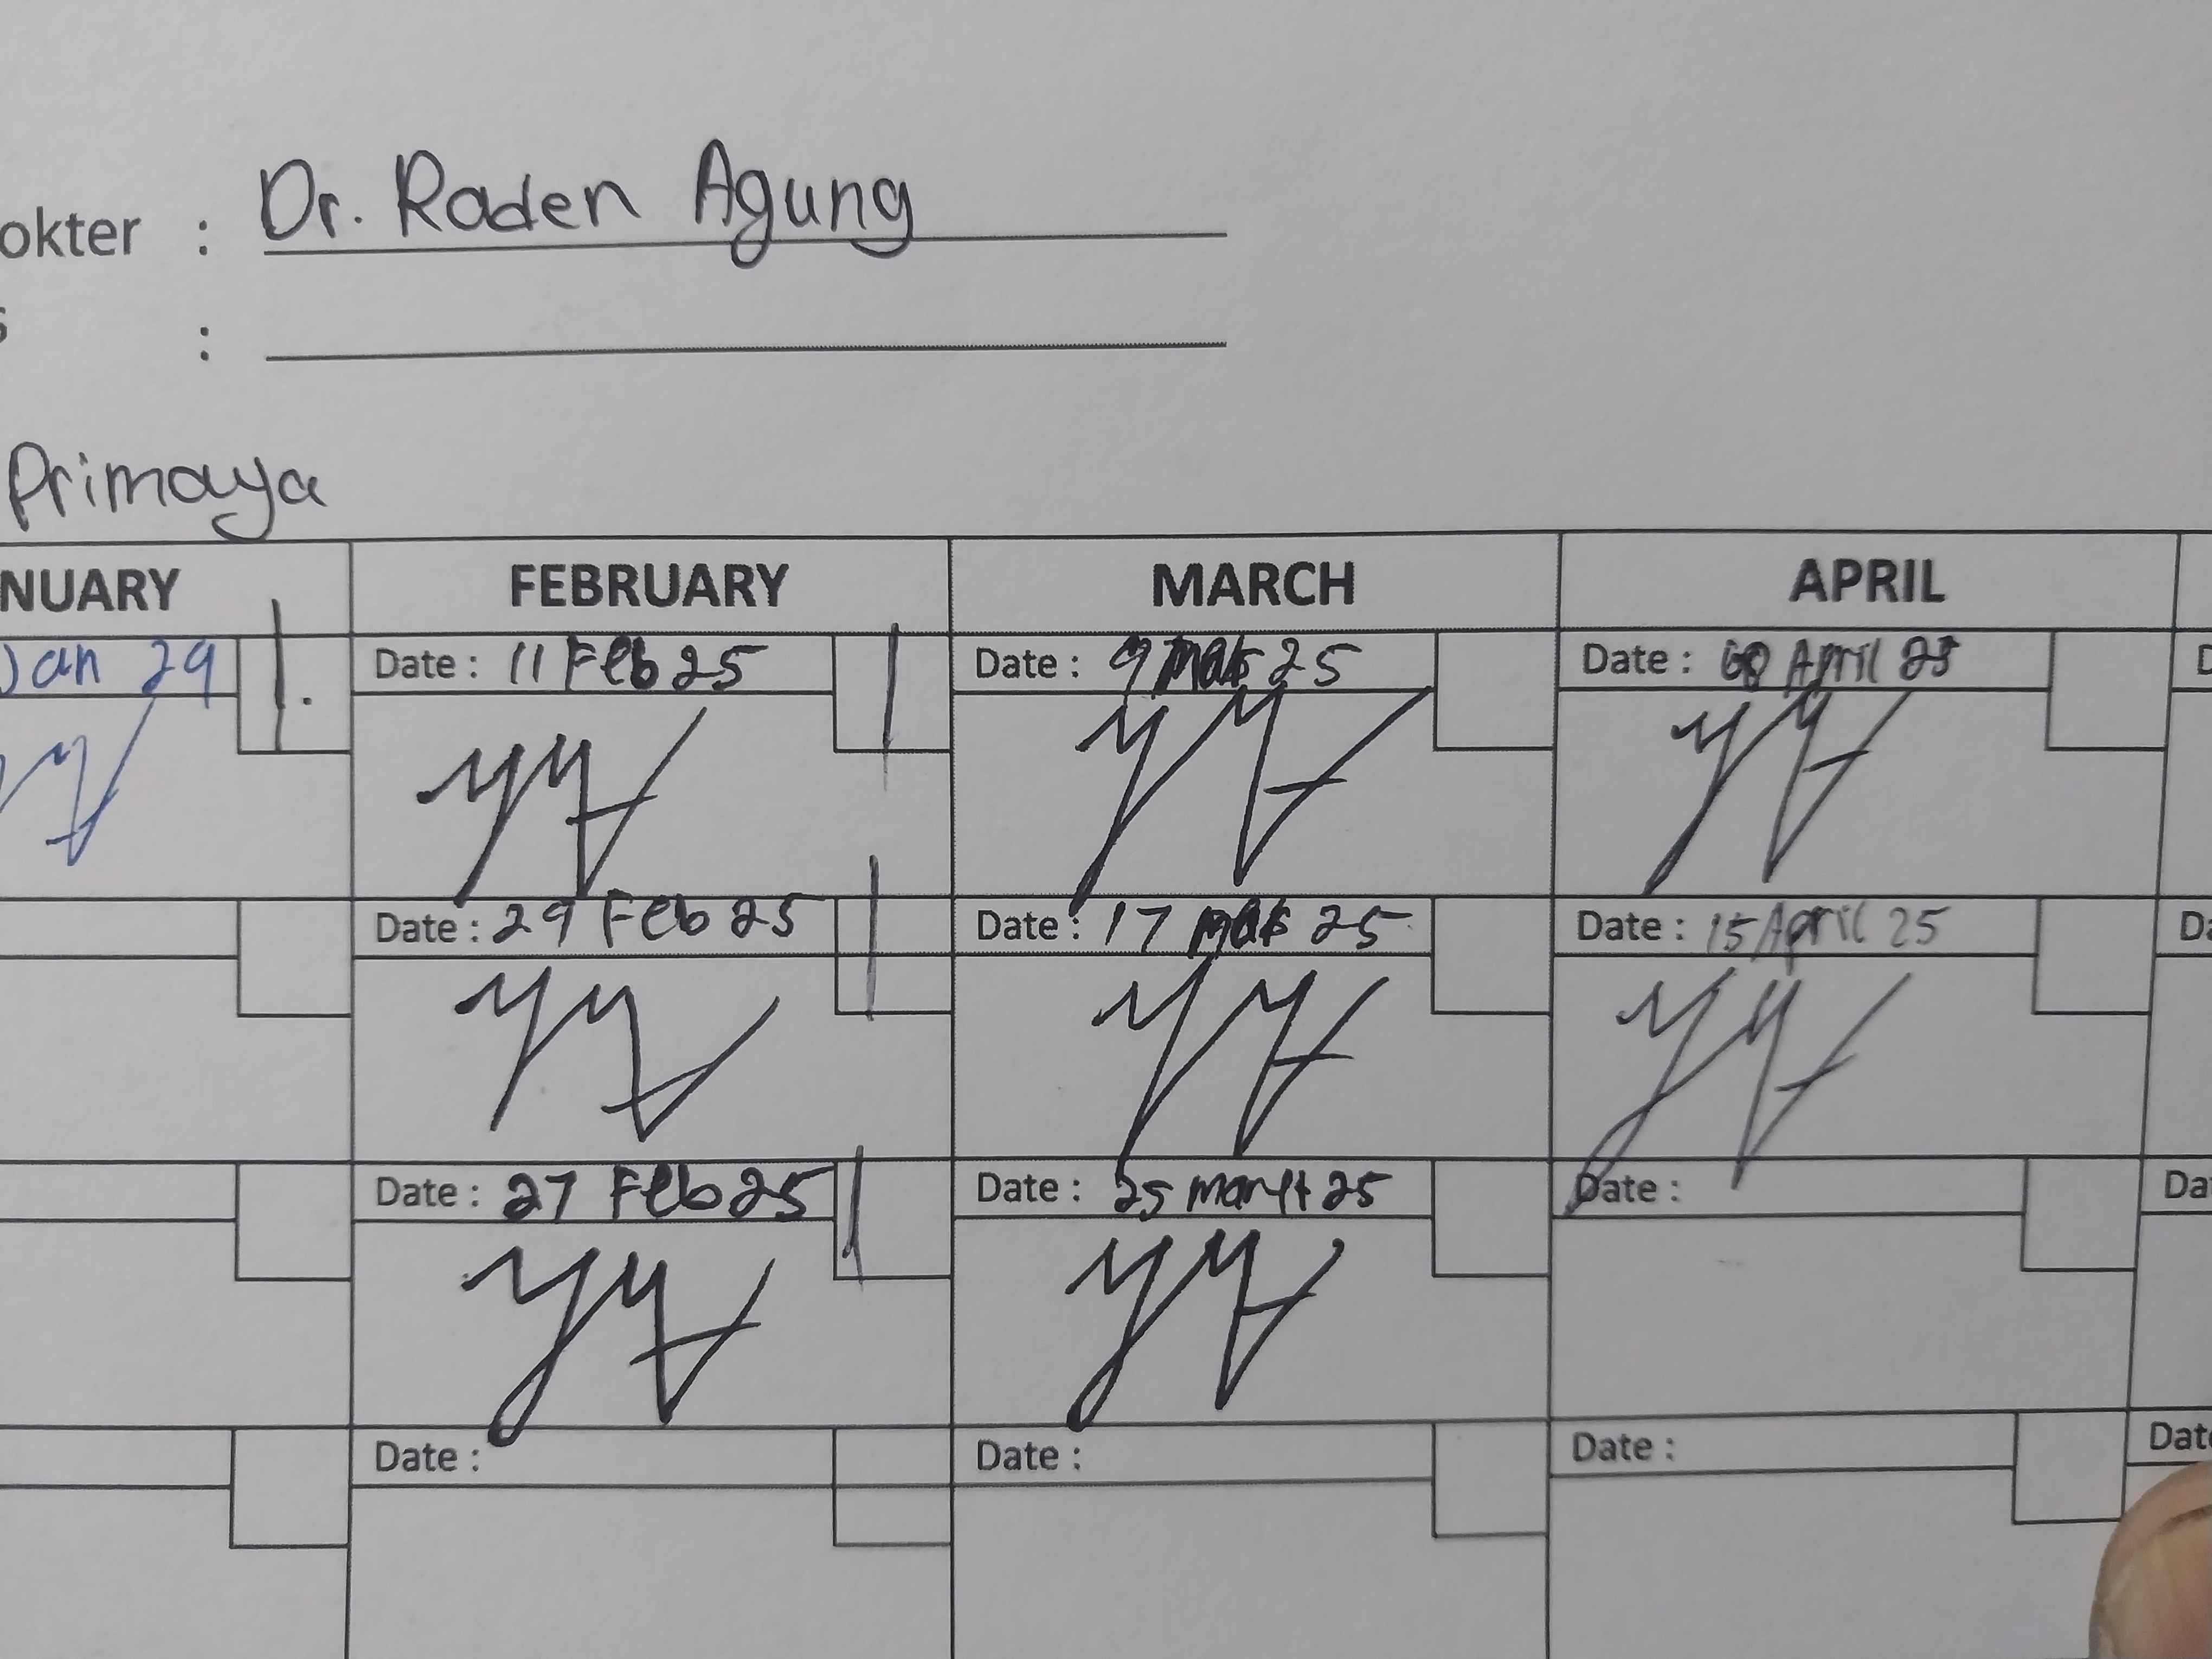 okter : Dr. Raden Agung
:
Primaya
NUARY FEBRUARY MARCH APRIL
Jan 29 Date : 11 Feb 25 Date : 9 Mar 25 Date : April 25
Date : 29 Feb 25 Date : 17 Mar 25 Date : 15 April 25
Date : 27 Feb 25 Date : 25 25 Date :
Date : Date : Date :